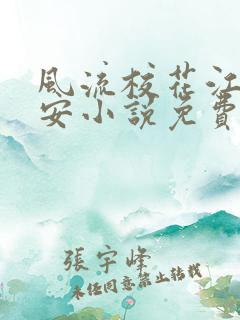 風流校花江
安小說免費
張宇峰
未經同意禁止轉載